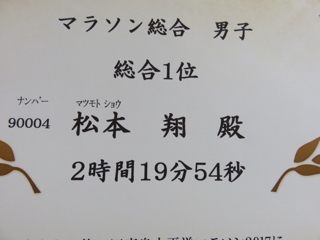 マラソン総合 男子
総合1位
ナンバー マツモト ショウ
90004 松本 翔 殿
2時間19分54秒